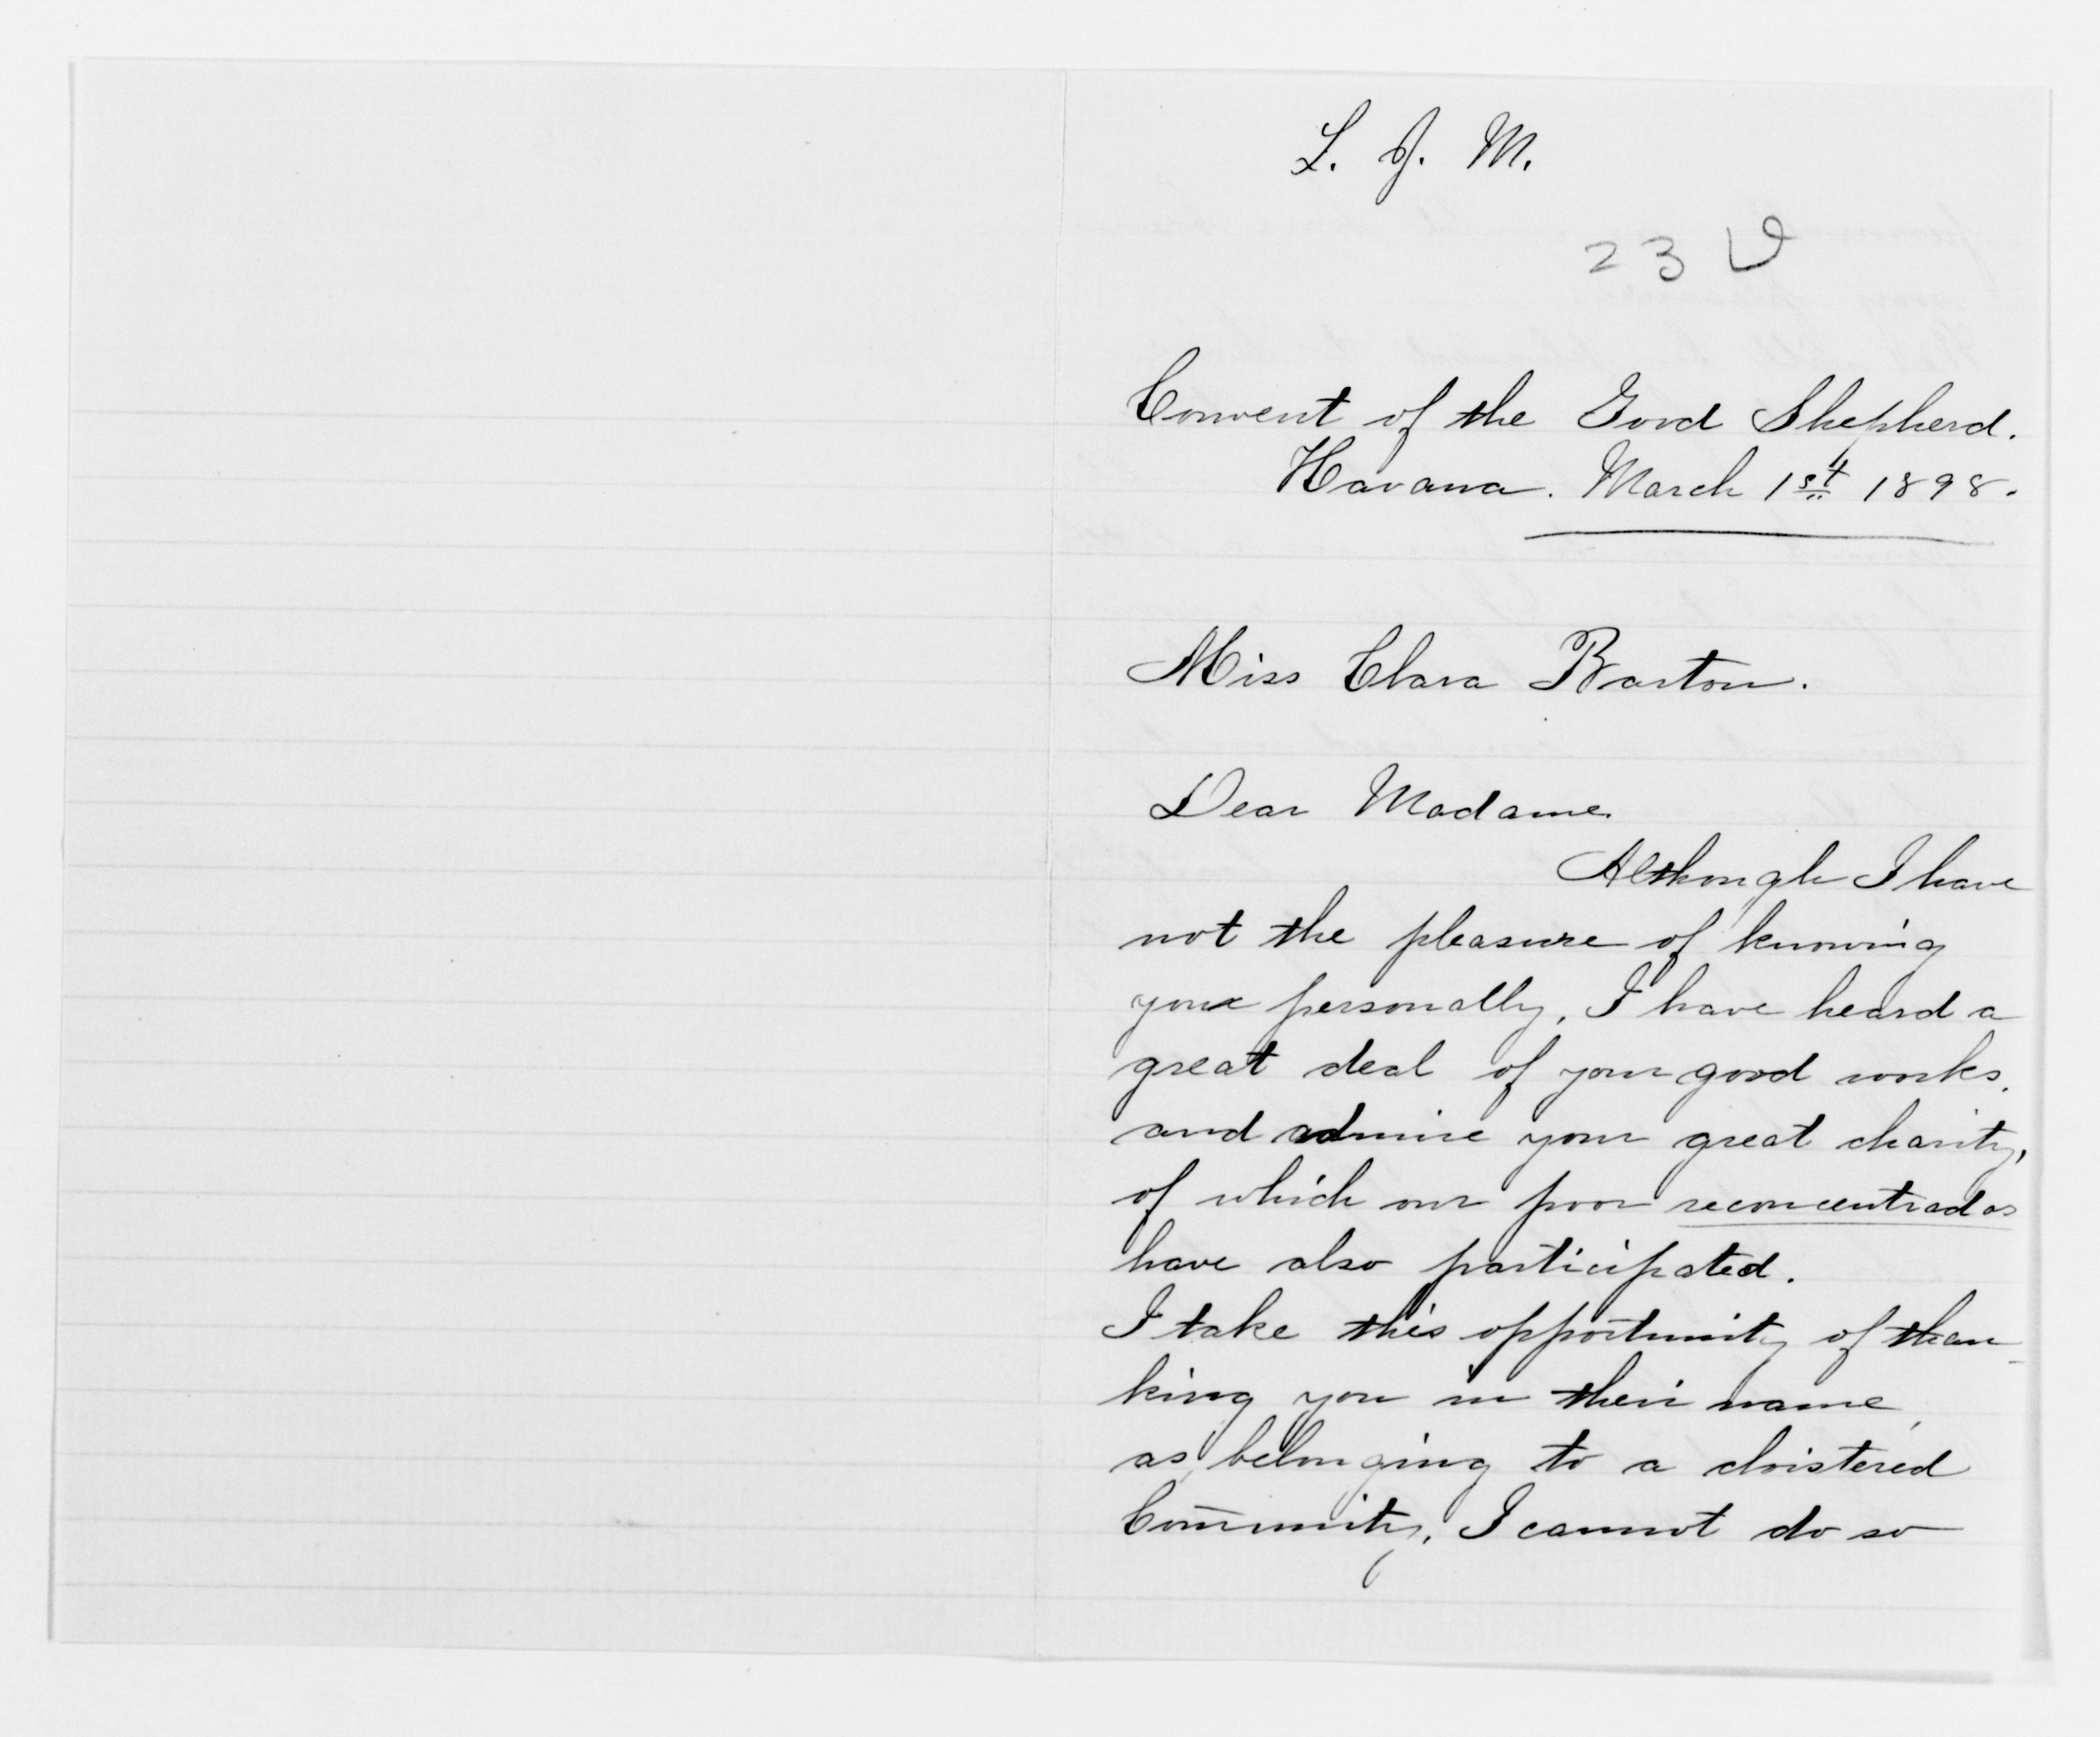 L. J. M.
23
Convent of the Good Shepherd.
Havana. March 1st 1898.
Miss Clara Barton.
Dear Madame.
Although I have
not the pleasure of knowing
you personally, I have heard a
great deal of your good works.
and admire your great charity,
of which our poor reconcentrados
have also participated.
I take this opportunity of than-
king you in their name,
as belonging to a cloistered
Community, I cannot do so